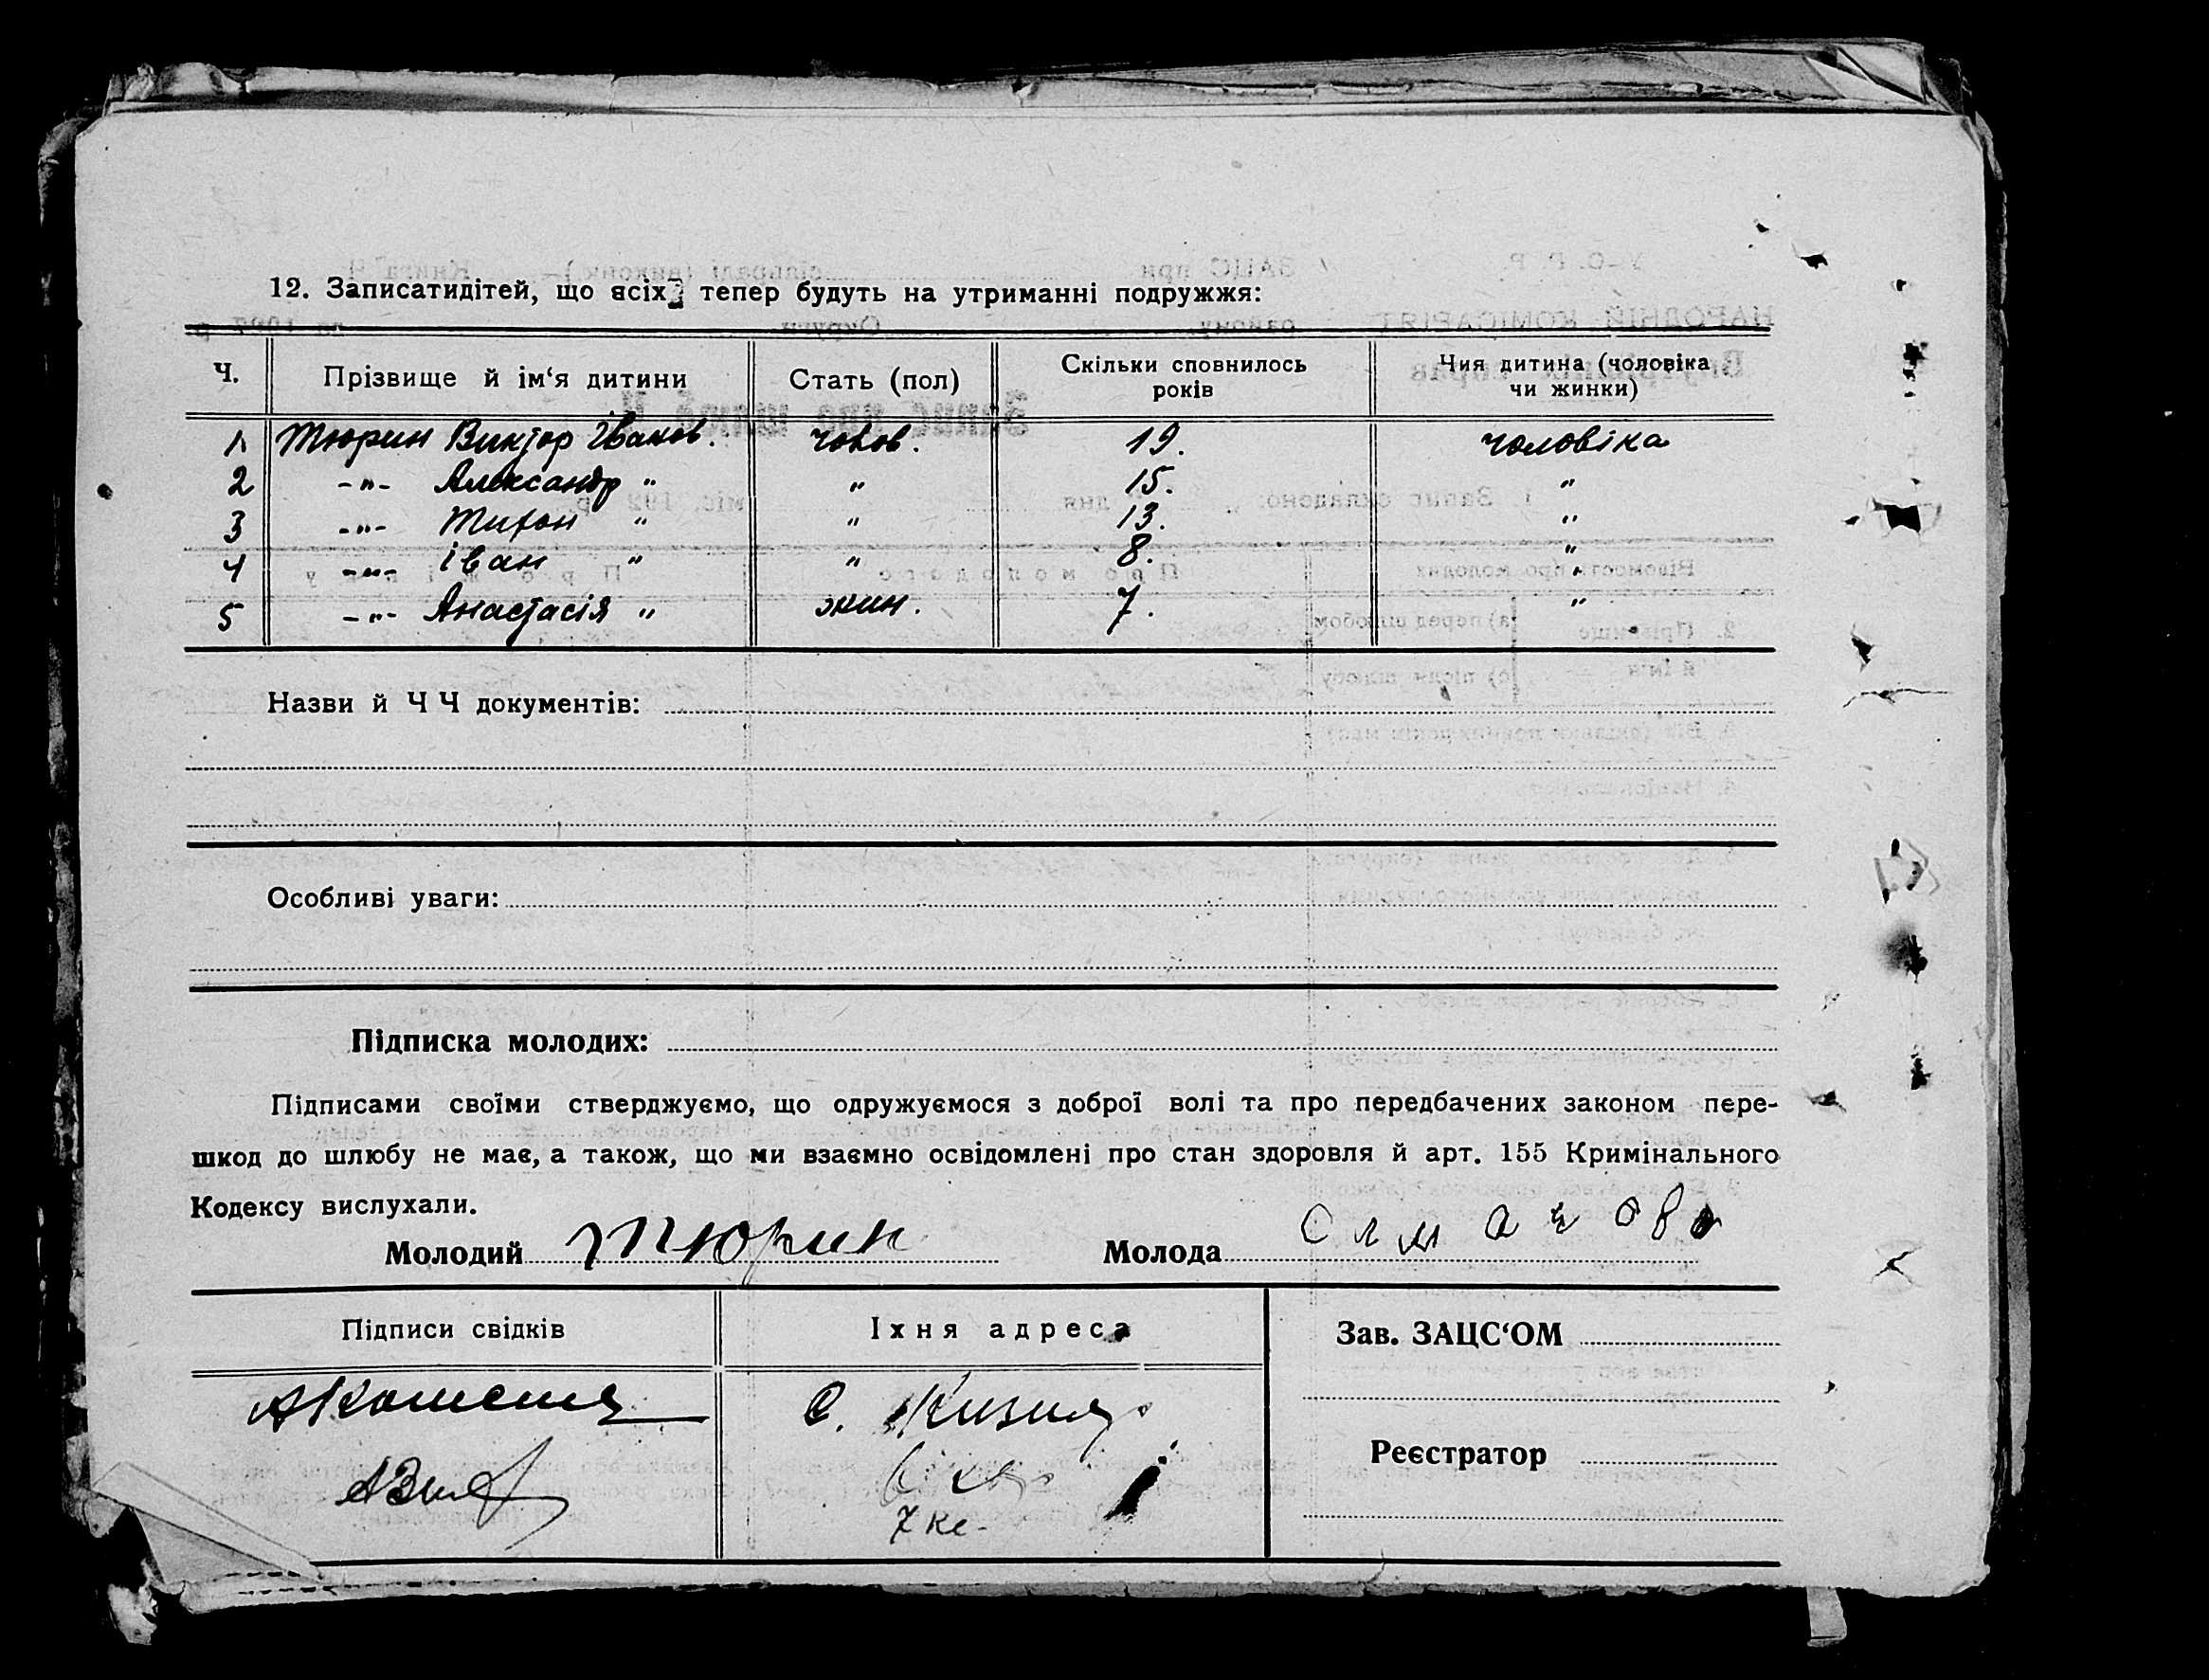 12. Записатидітей, що всіх тепер будуть на утриманні подружжя:
Ч. Прізвище й ім‘я дитини Стать (пол) Скільки сповнилось років Чия дитина (чоловіка чи жинки)
1 Тюрин Виктор Іванов. чолов. 19. чоловіка
2 -„- Александр „ „ 15. „
3 -„- Тихон „ „ 13. „
4 -„- Іван „ „ 8. „
5 -„- Анастасія „ жин. 7. „
Назви й Ч Ч документів:
Особливі уваги:
Підписка молодих:
Підписами своїми стверджуємо, що одружуємося з доброї волі та про передбачених законом пере-
шкод до шлюбу не має, а також, що ми взаємно освідомлені про стан здоровля й арт. 155 Кримінального
Кодексу вислухали.
Молодий Тюрин Молода
Підписи свідків Їхня адреса Зав. ЗАЦС‘ОМ
С.
Реєстратор